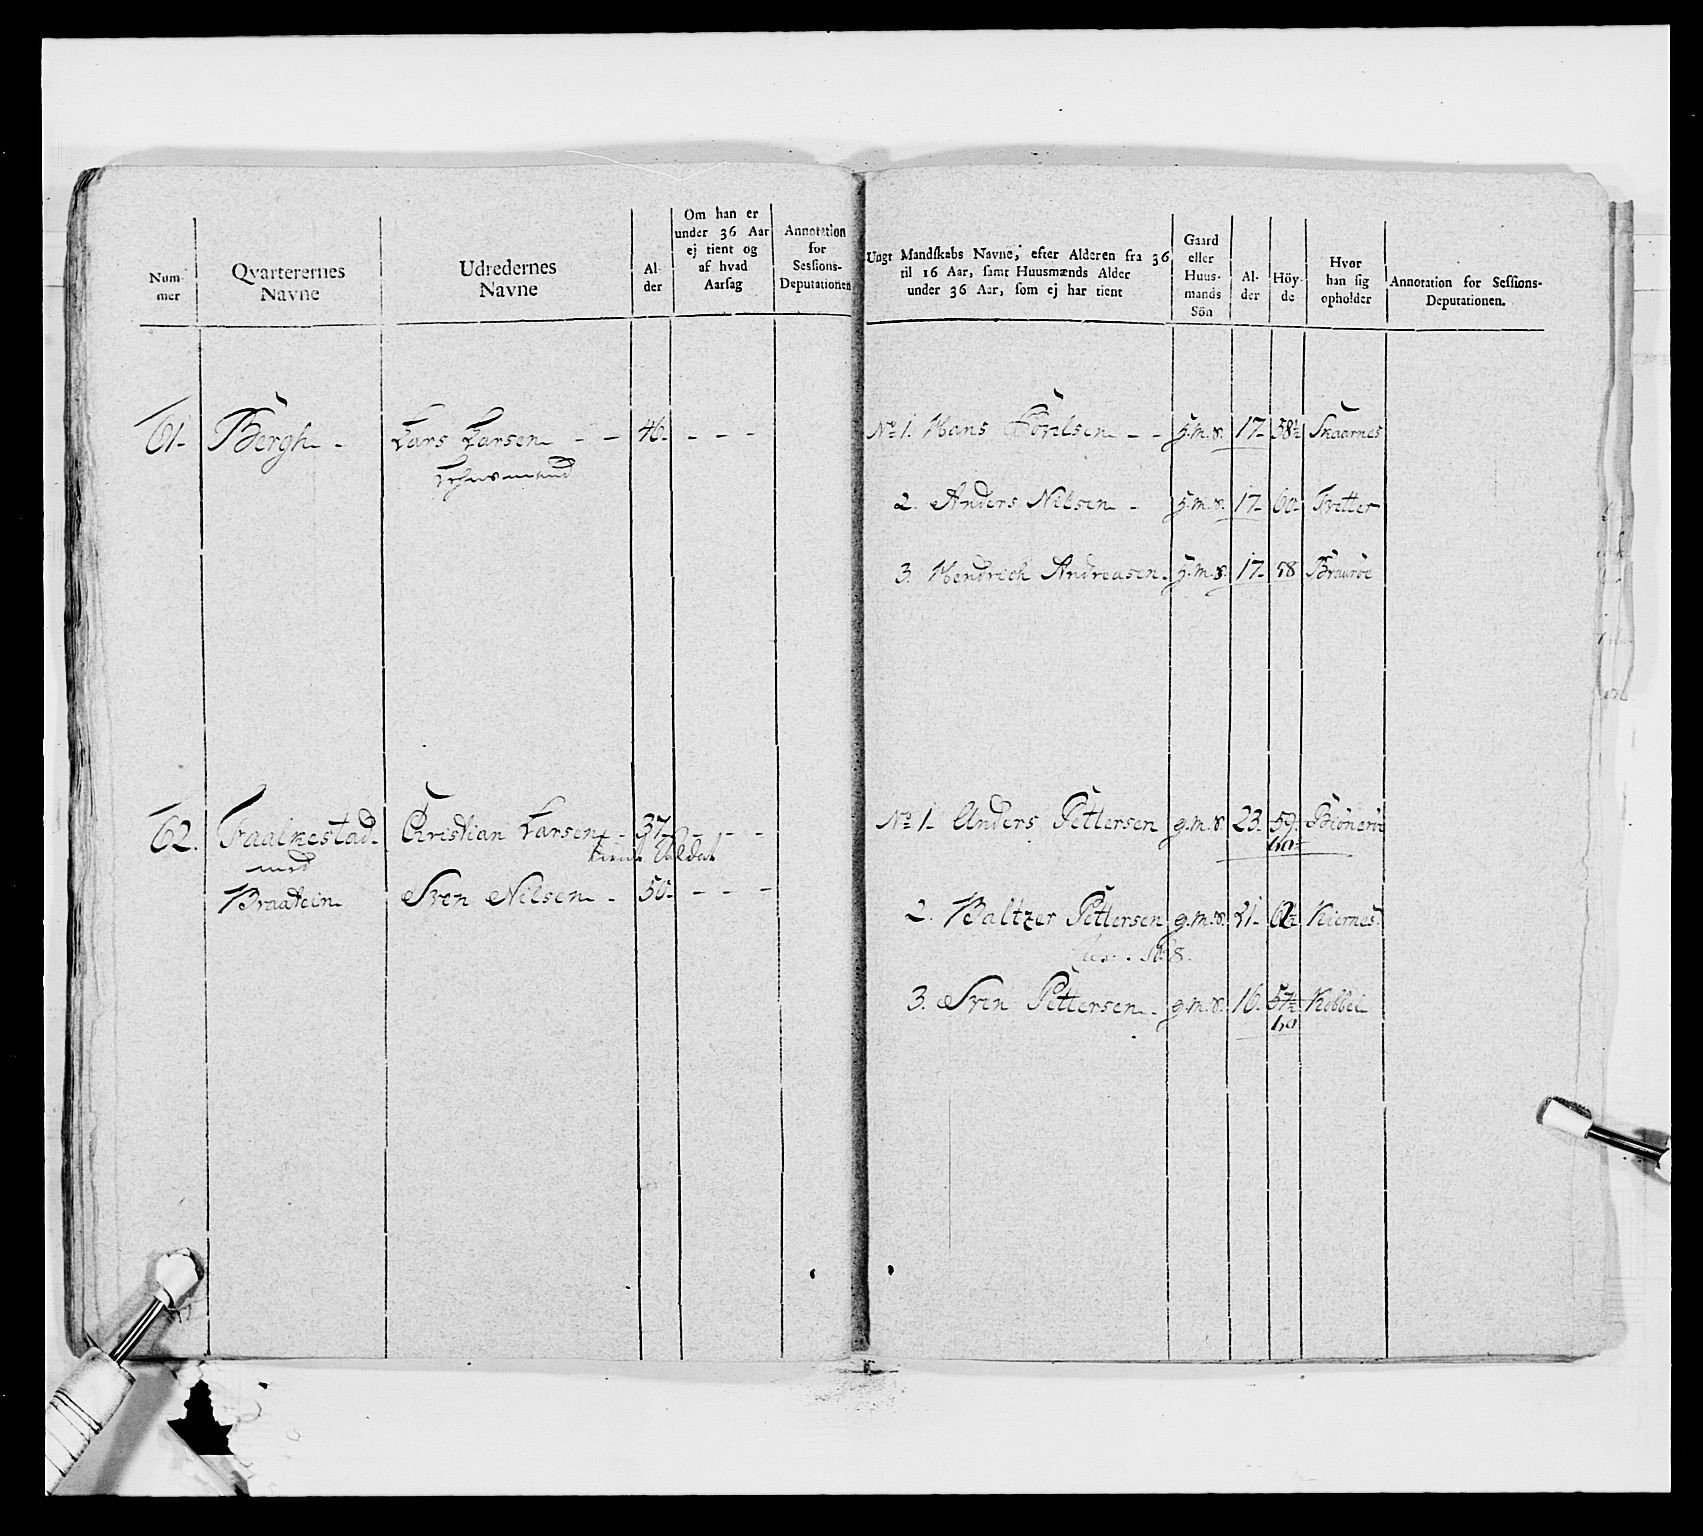 Num-
mer
Qvarterernes
Navne
Udredernes
Navne
Al-
der
Om han er
under 36 Aar
ej tient og
af hvad
Aarsag
Annotation
for
Sessions-
Deputationen
61- Bergh - Lars Larsen - - 46- - - -
62. Faalkestad- Christian Larsen - 37- - - -
med
Braatein Sven Nilsen - 50- - - -
Ungt Mandskabs Navne, efter Alderen fra 36
til 16 Aar, samt Huusmænds Alder
under 36 Aar, som ej har tient
Gaard
eller
Huus-
mands
Sön
Al-
der
Höy-
de
Hvor
han sig
opholder
Annotation for Sessions-
Deputationen.
No 1. Hans - - 17- 58½ Skaarnes
2. Anders Nilsen - 17- 60- Tvetter
3. Hendrich Andreasen. 17- 58
No 1- Anders Pettersen g.m.s. 23. 59.
60
2. Baltzer Pettersen g.m.s. 21- Kiernes
3. Sven Pettersen - g.m.s. 16. 57½ Kobbel
60